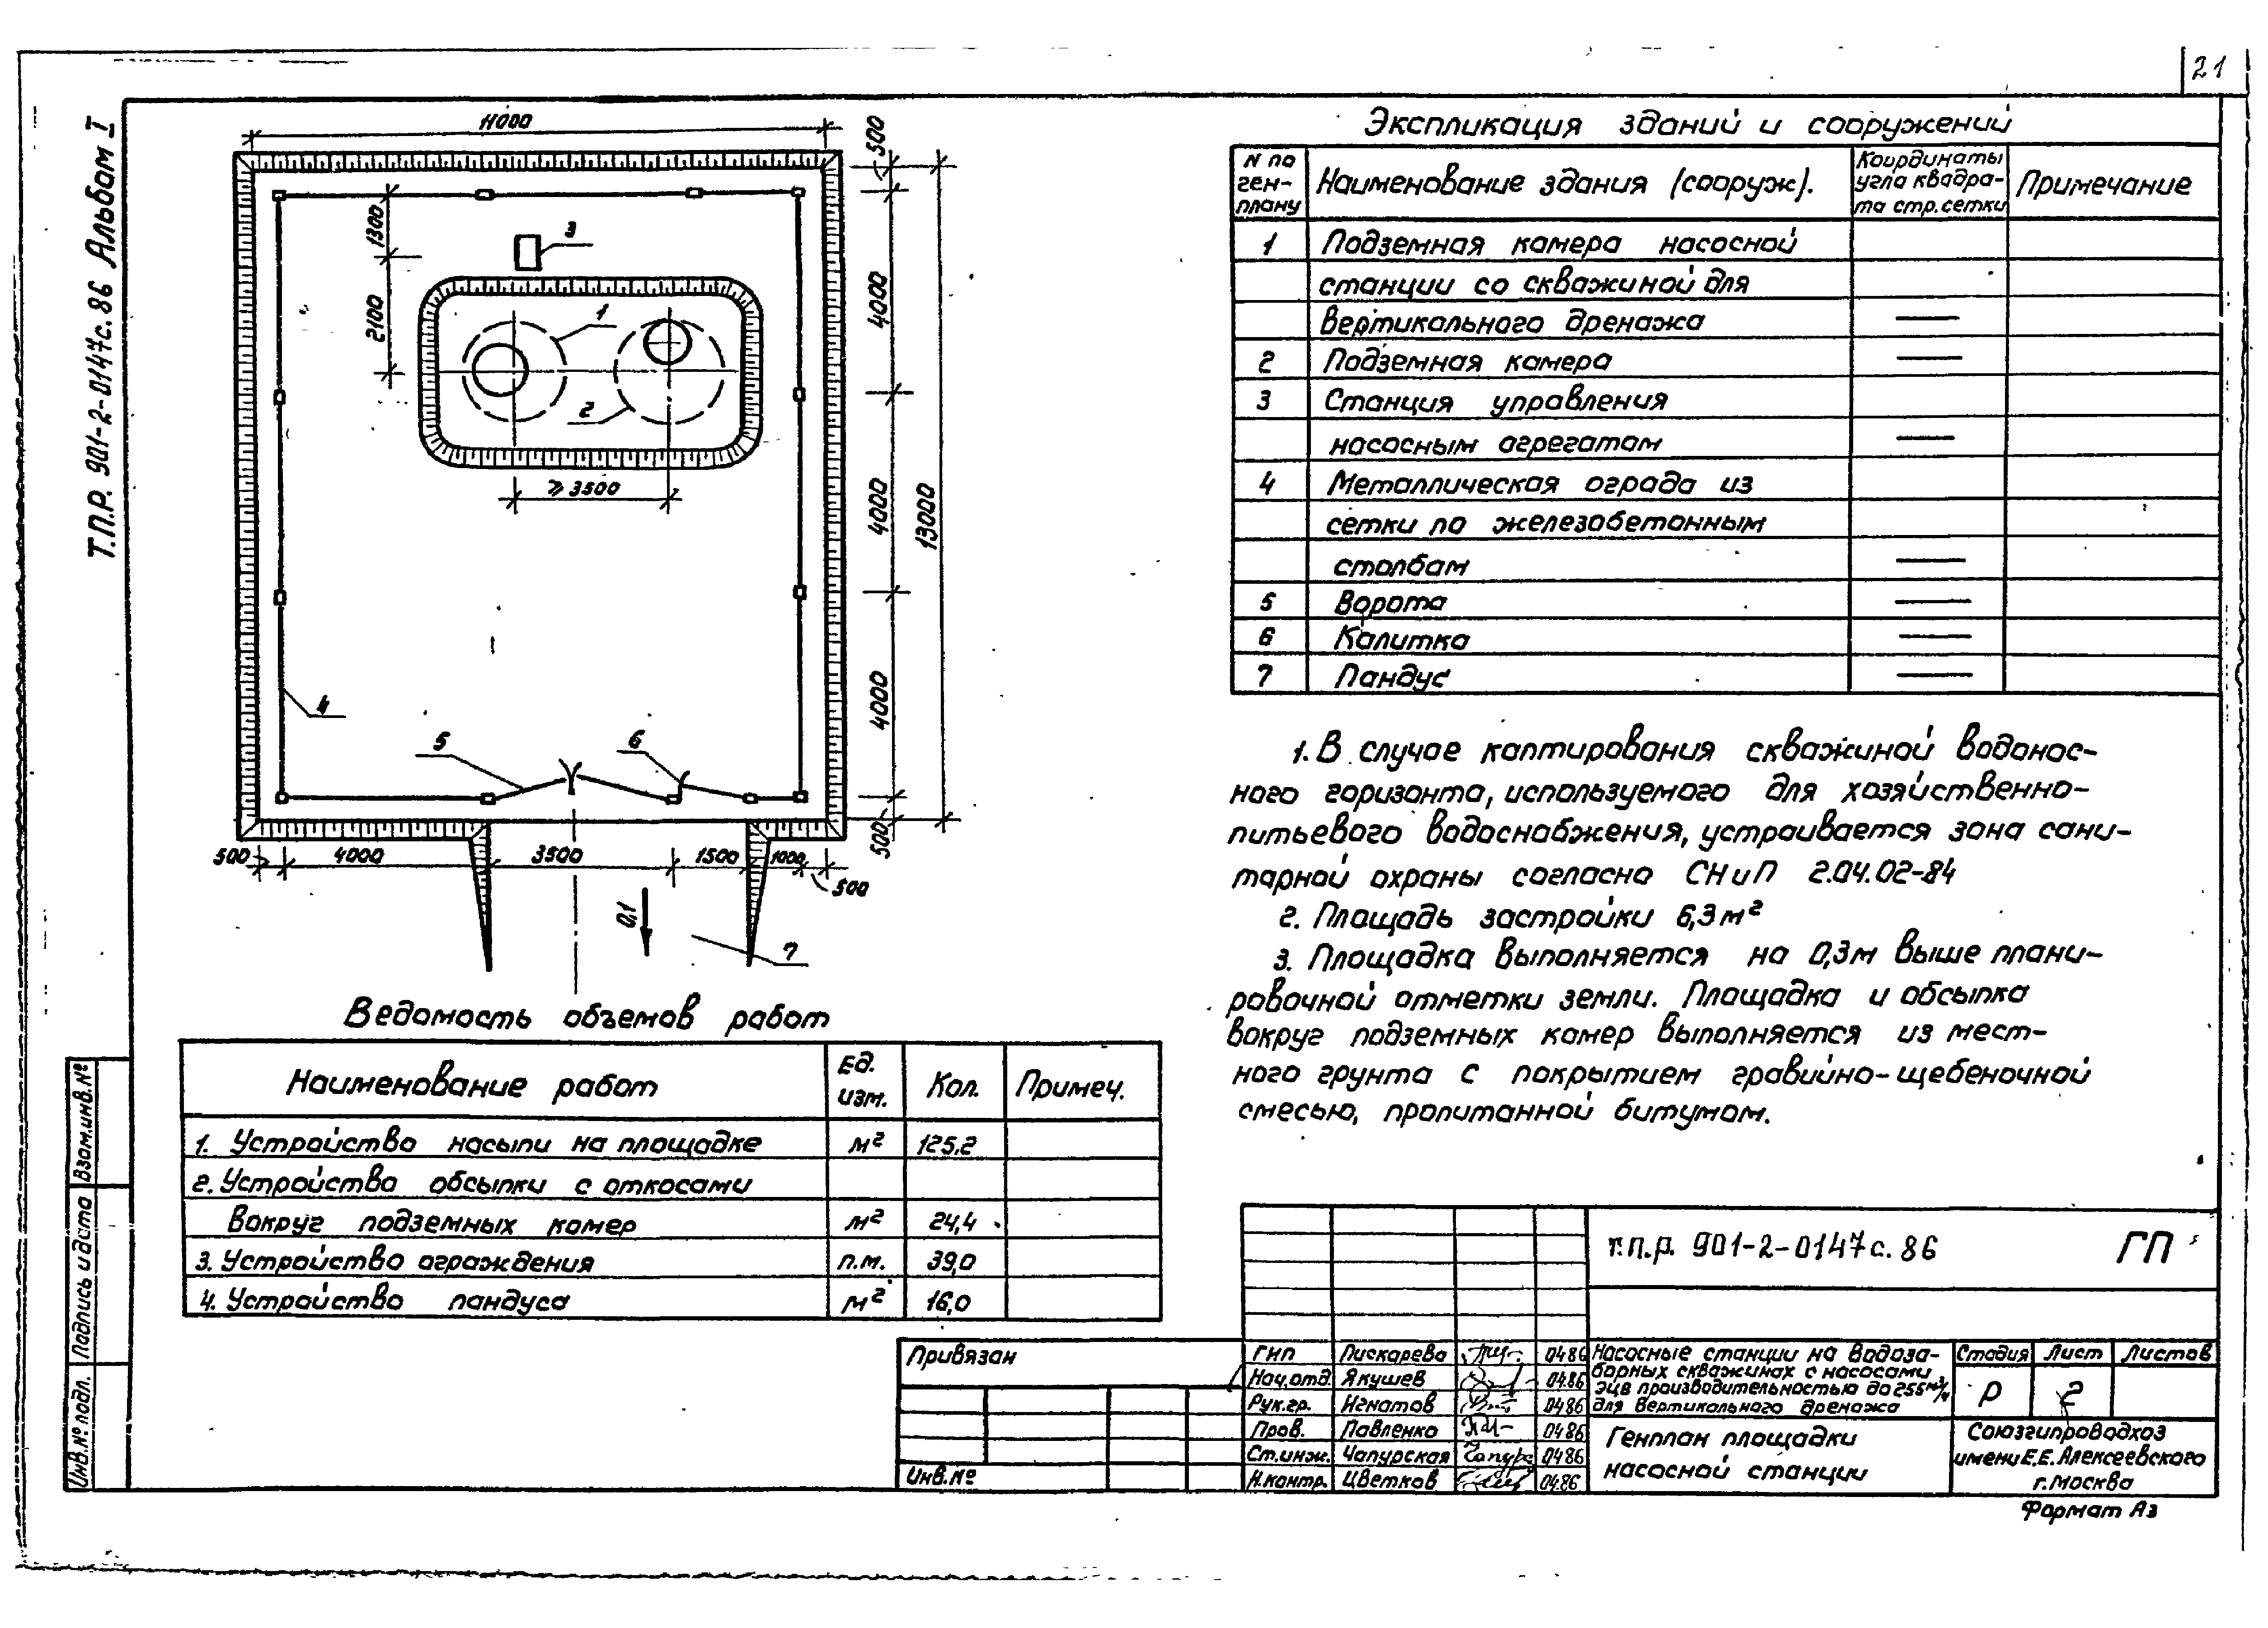 21
Т.П.Р. 901-2-0147с.86 Альбом I
11000
500
1300
2100
3
1
2
⩾3500
4000
4000
4000
13000
500
4
5
6
500
4000
3500
1500
1000
500
0,1
7
Экспликация зданий и сооружений
N по ген-плану
Наименование здания (сооруж).
Координаты угла квадра-та стр. сетки
Примечание
1 Подземная камера насосной
станции со скважиной для
вертикального дренажа —
2 Подземная камера —
3 Станция управления
насосным агрегатом —
4 Металлическая ограда из
сетки по железобетонным
столбам —
5 Ворота —
6 Калитка —
7 Пандус —
1. В случае каптирования скважиной водонос-
ного горизонта, используемого для хозяйственно-
питьевого водоснабжения, устраивается зона сани-
тарной охраны согласно СНиП 2.04.02-84
2. Площадь застройки 6,3м²
3. Площадка выполняется на 0,3м выше плани-
ровочной отметки земли. Площадка и обсыпка
вокруг подземных камер выполняется из мест-
ного грунта с покрытием гравийно-щебеночной
смесью, пропитанной битумом.
Ведомость объемов работ
Наименование работ
Ед. изм.
Кол.
Примеч.
1. Устройство насыпи на площадке м² 125,2
2. Устройство обсыпки с откосами
вокруг подземных камер м² 24,4
3. Устройство ограждения п.м. 39,0
4. Устройство пандуса м² 16,0
Взам.инв.№
Подпись и дата
Инв.№ подл.
Привязан
Инв.№
т.п.р. 901-2-0147с.86 ГП
ГИП Пискарева 04.86
Нач.отд. Якушев 04.86
Рук.гр. Игнатов 04.86
Пров. Павленко 04.86
Ст.инж. Чапурская 04.86
Н.контр. Цветков 04.86
Насосные станции на водоза-
борных скважинах с насосами
ЭЦВ производительностью до 255м³/ч
для вертикального дренажа
Стадия Лист Листов
Р 2
Генплан площадки
насосной станции
Союзгипроводхоз
имени Е.Е.Алексеевского
г.Москва
Формат А3